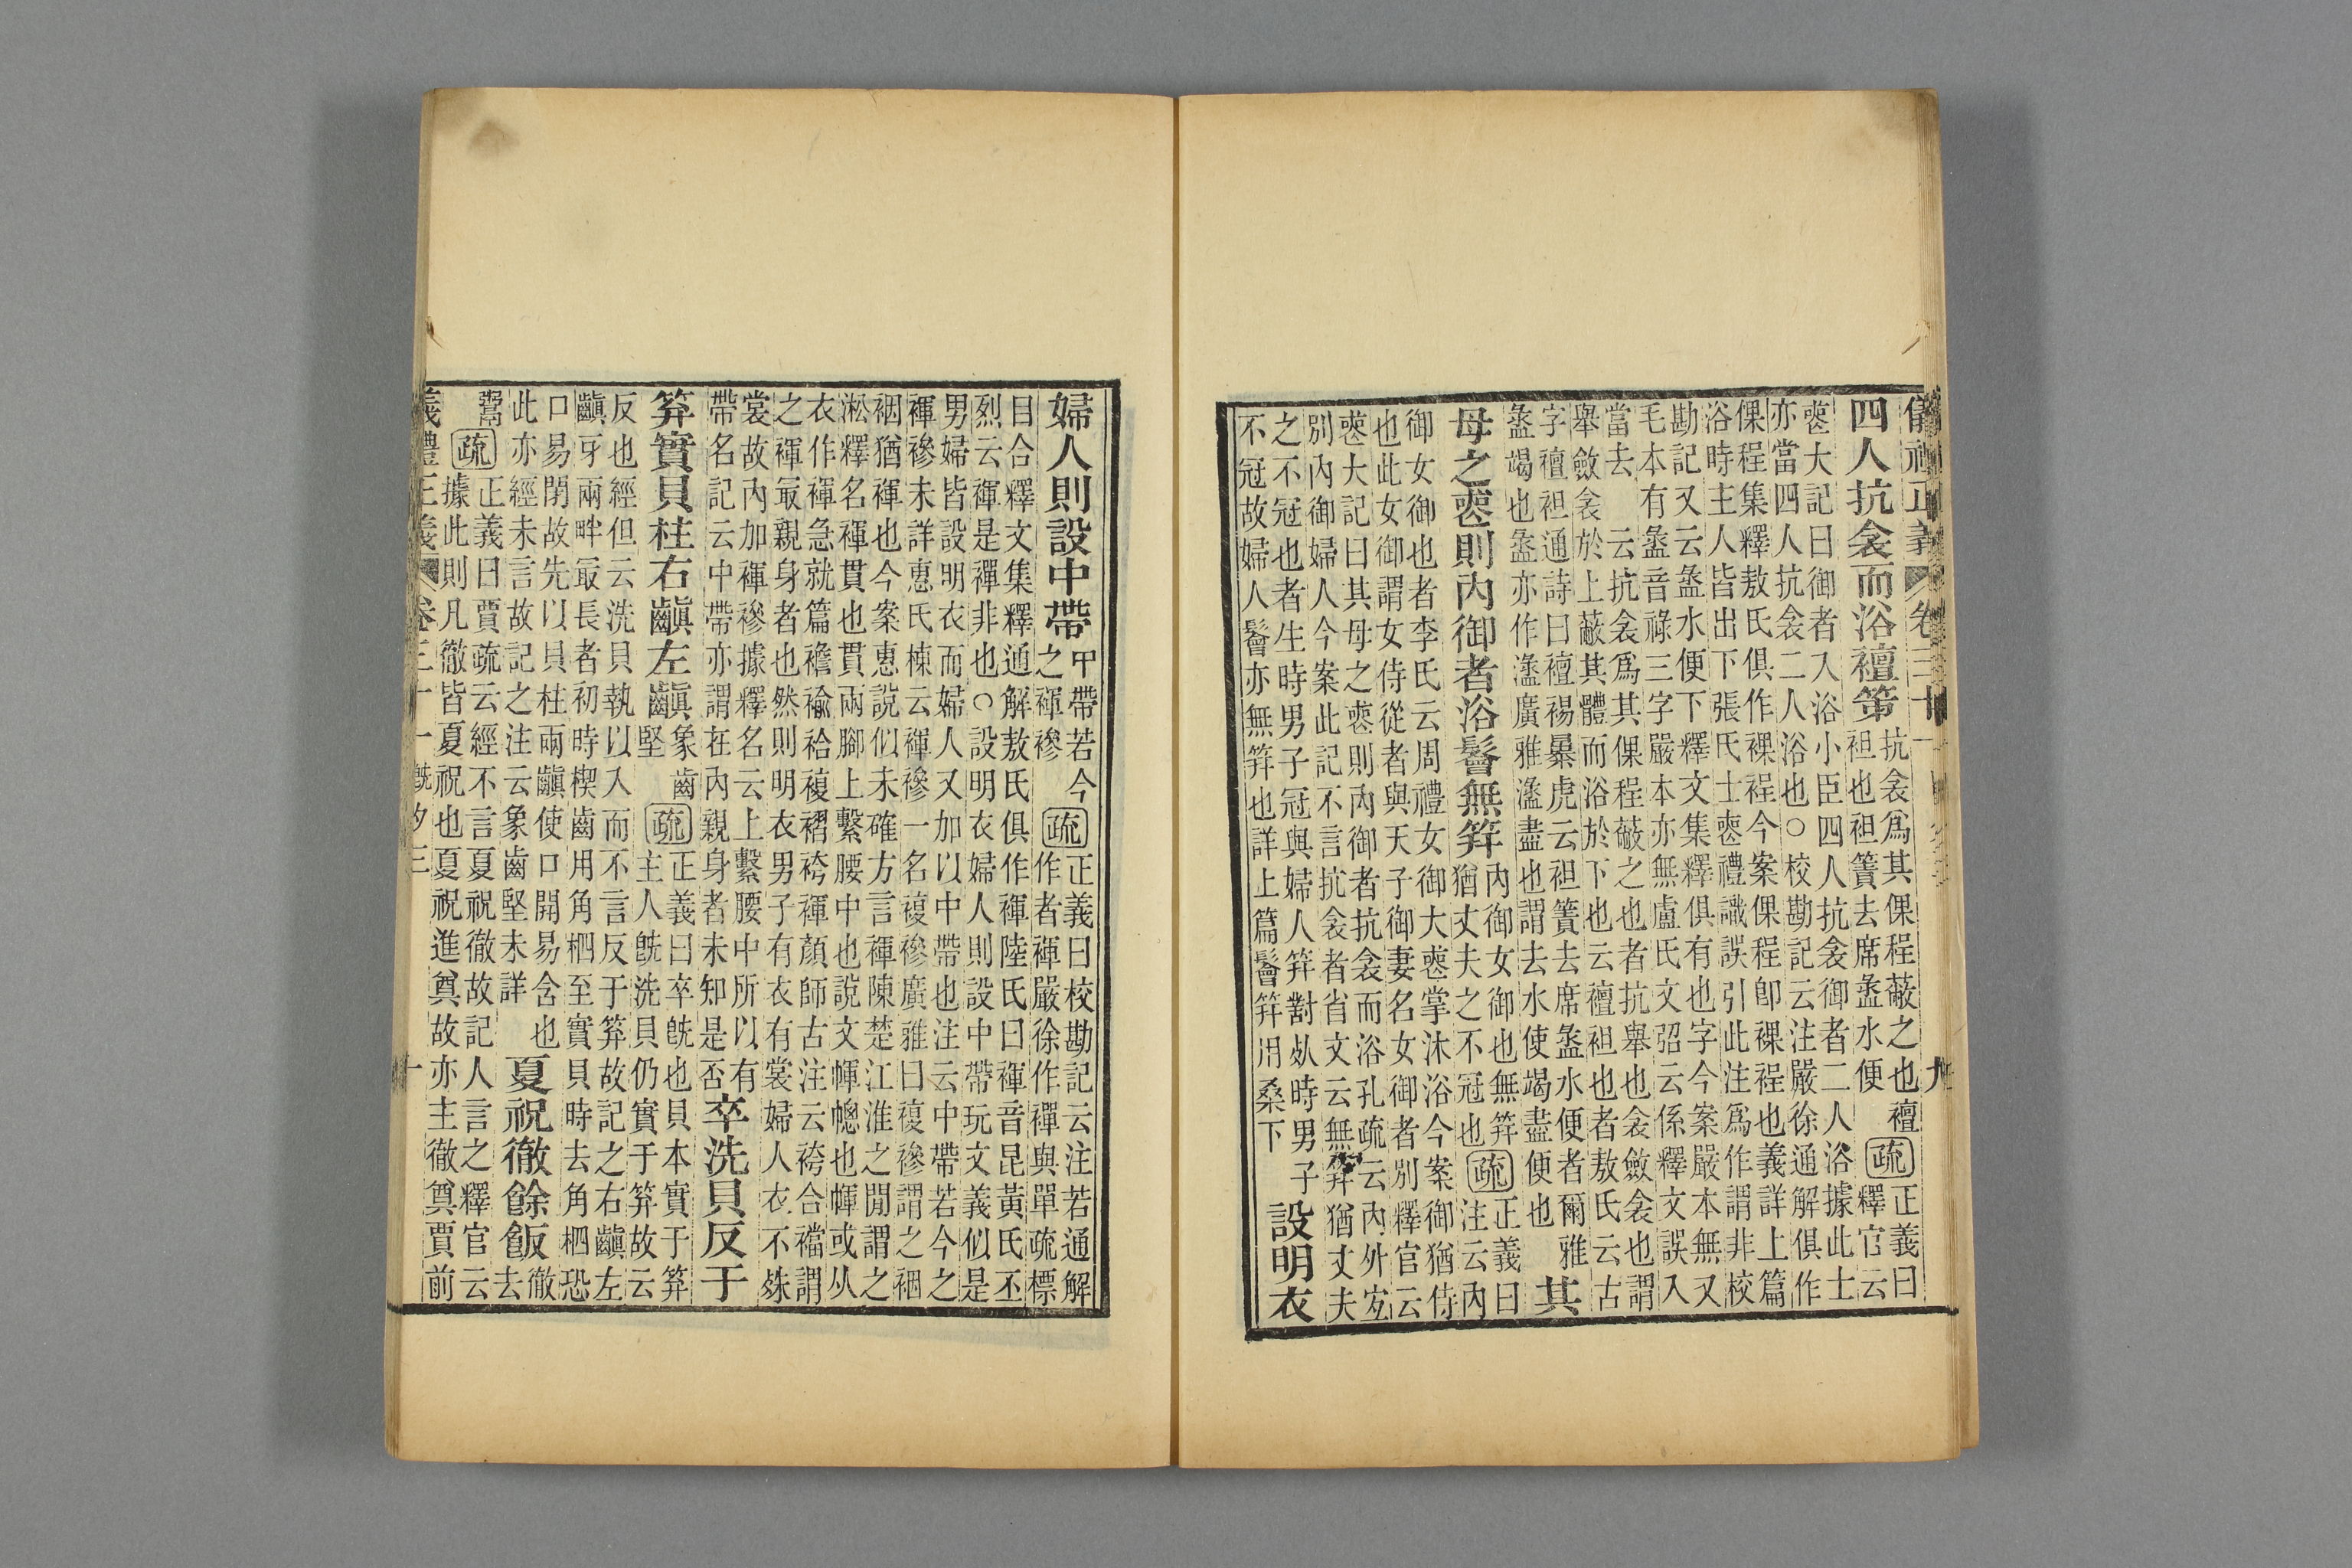 儀禮正義 卷三十一 九
四人抗衾而浴襢笫 抗衾爲其倮程蔽之也襢
袒也袒簀去席盝水便 疏 正義曰
釋官云
喪大記曰御者入浴小臣四人抗衾御者二人浴據此士
亦當四人抗衾二人浴也○校勘記云注嚴徐通解俱作
倮程集釋敖氏俱作裸裎今案倮程卽裸裎也義詳上篇
浴時主人皆出下張氏士喪禮識誤引此注爲作謂非校
勘記又云盝水便下釋文集釋俱有也字今案嚴本無又
毛本有盝音祿三字嚴本亦無盧氏文弨云係釋文誤入
當去 云抗衾爲其倮程蔽之也者抗舉也衾斂衾也謂
舉斂衾於上蔽其體而浴於下也云襢袒也者敖氏云古
字襢袒通詩曰襢裼暴虎云袒簀去席盝水便者爾雅
盝竭也盝亦作盪廣雅盪盡也謂去水使竭盡便也 其
母之喪則內御者浴鬠無笄 內御女御也無笄
猶丈夫之不冠也 疏 正義曰
注云內
御女御也者李氏云周禮女御大喪掌沐浴今案御猶侍
也此女御謂女侍從者與天子御妻名女御者別釋官云
喪大記曰其母之喪則內御者抗衾而浴孔疏云內外宐
別內御婦人今案此記不言抗衾者省文云無笄猶丈夫
之不冠也者生時男子冠與婦人笄對死時男子
不冠故婦人鬠亦無笄也詳上篇鬠笄用桑下 設明衣
婦人則設中帶 中帶若今
之褌襂 疏 正義曰校勘記云注若通解
作者褌嚴徐作襌與單疏標
目合釋文集釋通解敖氏俱作褌陸氏曰褌音昆黃氏丕
烈云褌是襌非也○設明衣婦人則設中帶玩文義似是
男婦皆設明衣而婦人又加以中帶也注云中帶若今之
褌襂未詳惠氏棟云褌襂一名複襂廣雅曰複襂謂之裀
裀猶褌也今案惠說似未確方言褌陳楚江淮之閒謂之
淞釋名褌貫也貫兩腳上繫腰中也說文㡓幒也㡓或从
衣作褌急就篇襜褕袷複褶袴褌顏師古注云袴合襠謂
之褌冣親身者也然則明衣男子有衣有裳婦人衣不殊
裳故內加褌襂據釋名云上繫腰中所以有
帶名記云中帶帶亦謂在內親身者未知是否 卒洗貝反于
笲實貝柱右齻左齻 象齒
堅 疏 正義曰卒旣也貝本實于笲
主人旣洗貝仍實于笲故云
反也經但云洗貝執以入而不言反于笲故記之右齻左
齻牙兩畔冣長者初時楔齒用角柶至實貝時去角柶恐
口易閉故先以貝柱兩齻使口開易含也
此亦經未言故記之注云象齒堅未詳 夏祝徹餘飯 徹
去
鬻 疏 正義曰賈疏云經不言夏祝徹故記人言之釋官云
據此則凡徹皆夏祝也夏祝進奠故亦主徹奠賈前